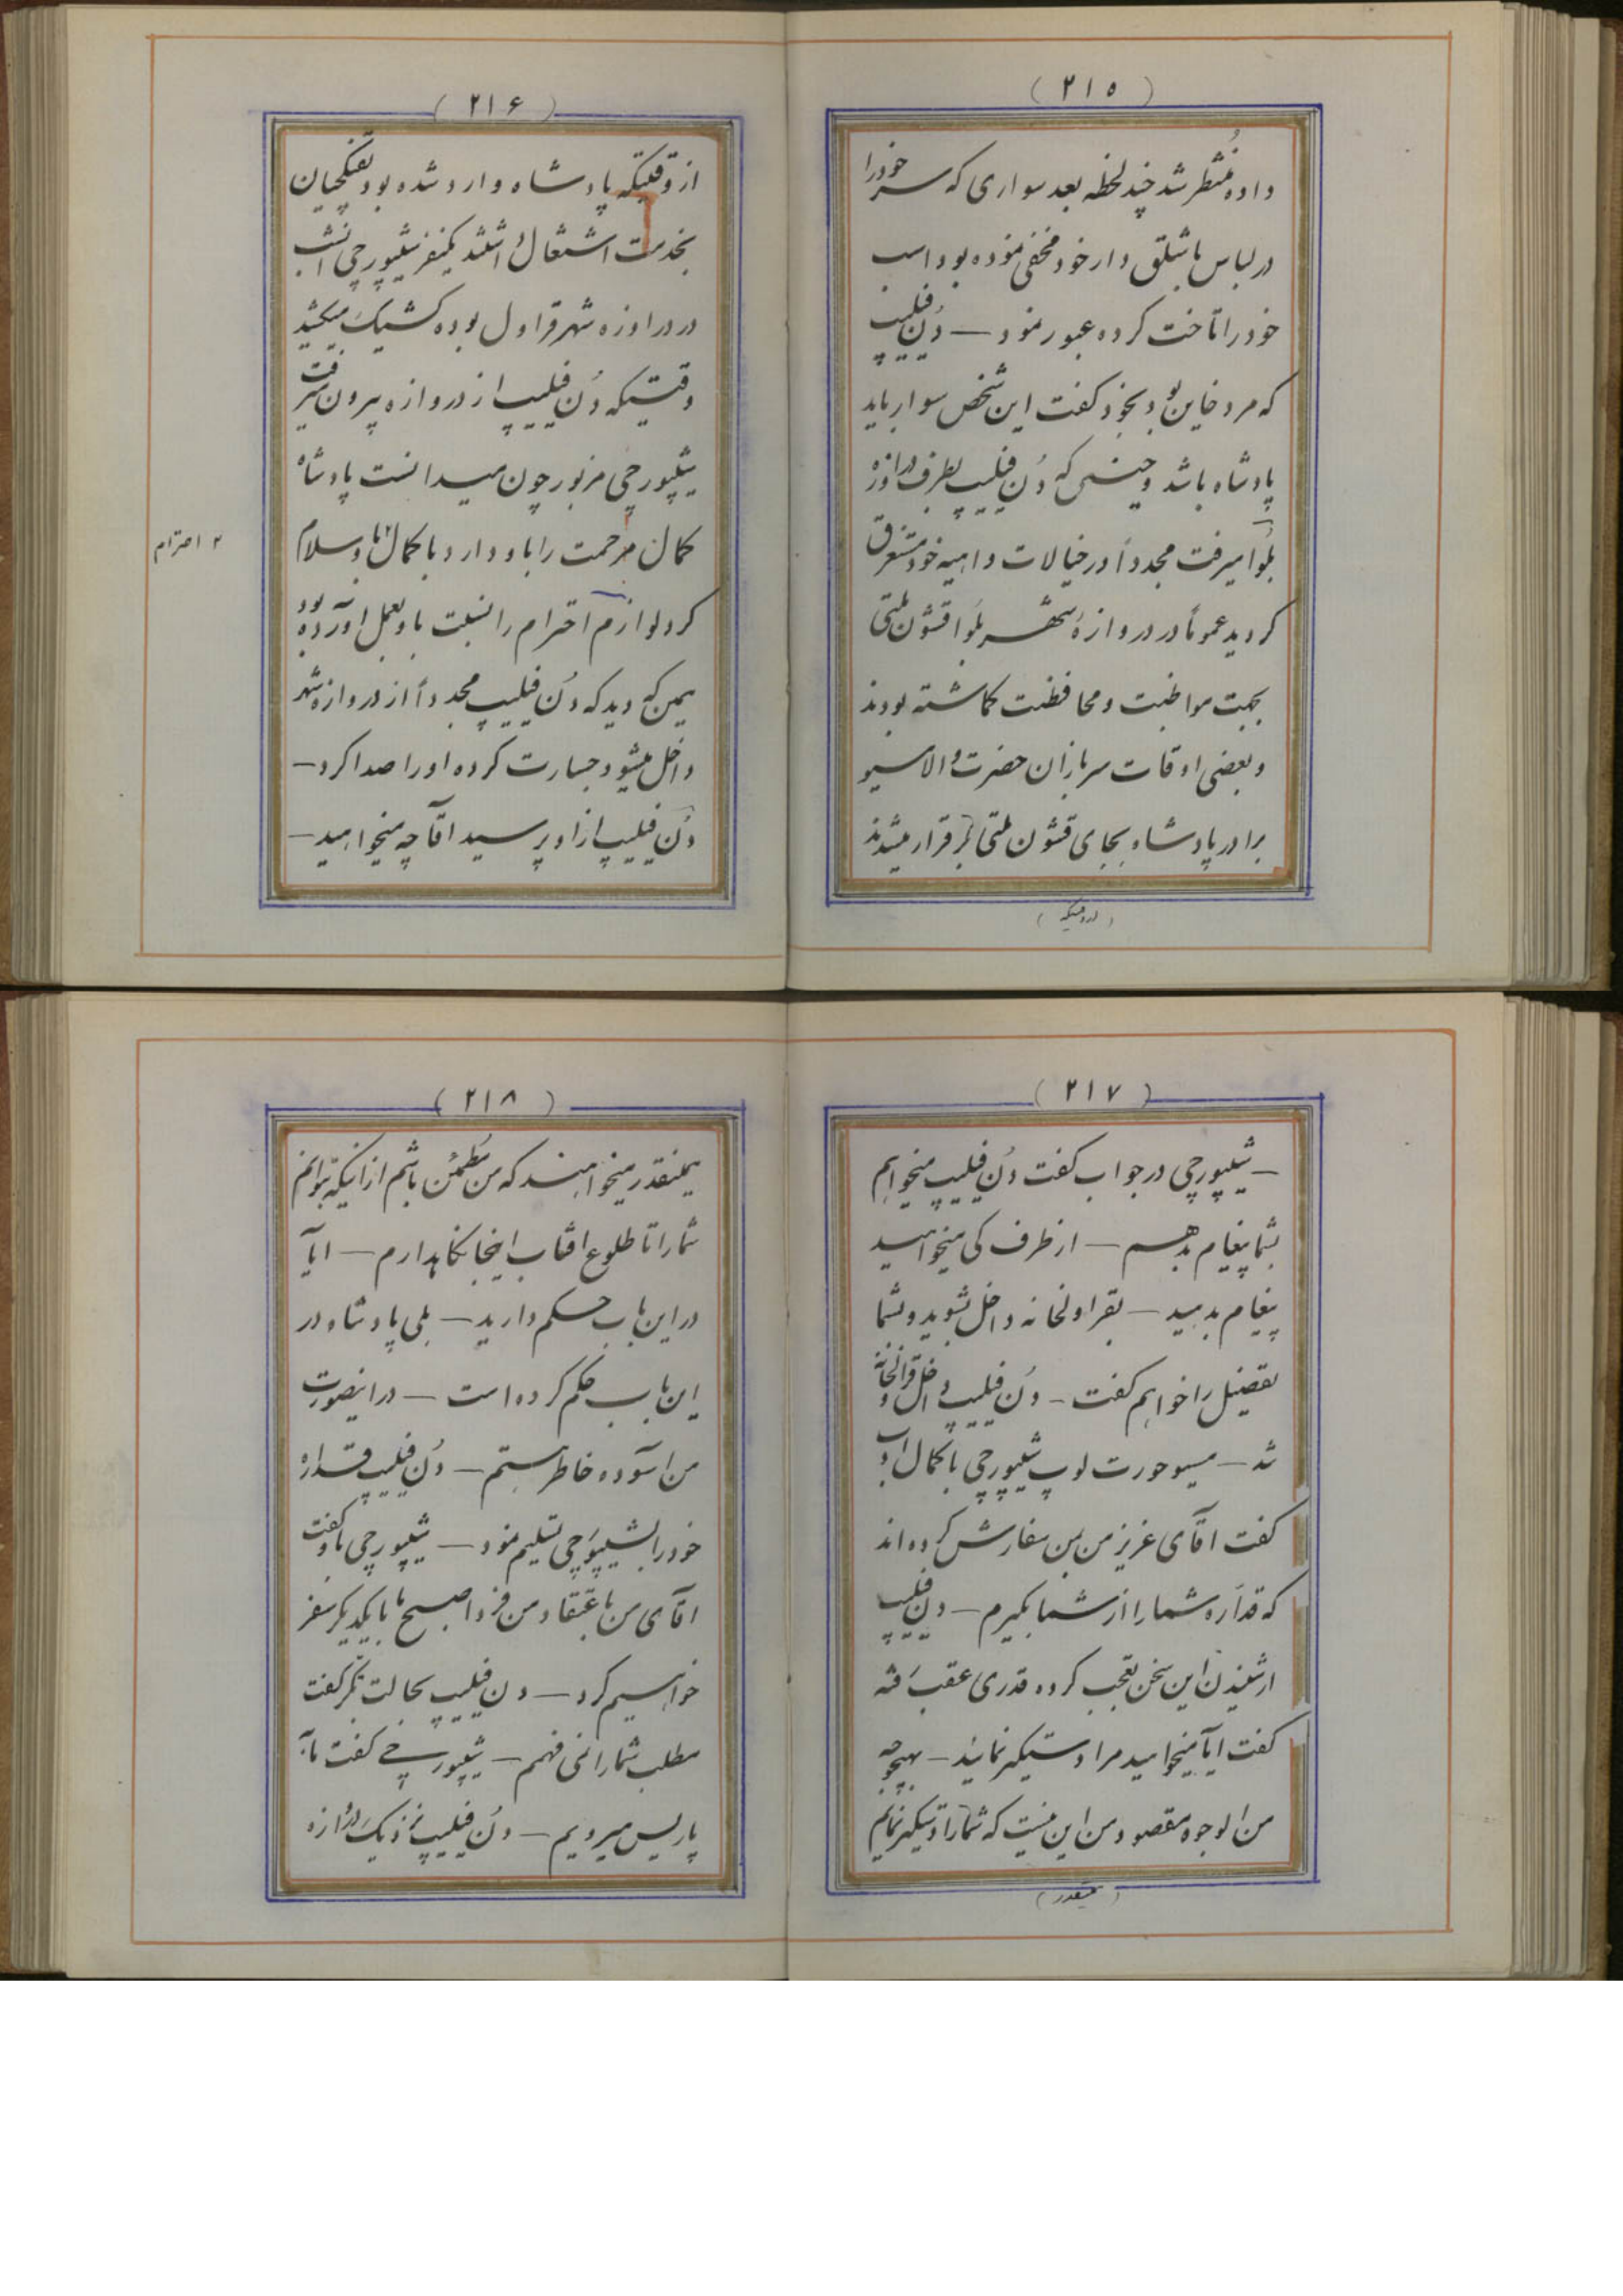 (۲۱۵)
داده منتظر شد چند لحظه بعد سواری که سر خود را
در لباس باشلق دار خود مخفی نموده بود اسب
خود را تاخت کرده عبور نمود — دُن فیلیپ
که مرد خاین بود بخود گفت این شخص سوار باید
پادشاه باشد و حینی که دُن فیلیپ بطرف دروازه
بلوا میرفت مجدداً در خیالات واهیه خود مستغرق
گردید عموماً در دروازهٔ شهر بلوا قشون ملتی
بجهت مواظبت و محافظت گماشته بودند
و بعضی اوقات سربازان حضرت والا مسیو
برادر پادشاه بجای قشون ملتی برقرار میشدند
(۲۱۶)
از وقتیکه پادشاه وارد شده بود تفنگچیان
بخدمت اشتغال داشتند یکنفر شیپورچی انشب
در دراوزه شهر قراول بوده کشیک میکشید
وقتیکه دُن فیلیپ از دروازه بیرون میرفت
شیپورچی مزبور چون میدانست پادشاه
کمال مرحمت را باو دارد با کمال ادب باو سلام
۲ احترام
کرد لوازم احترام را نسبت باو بعمل آورده بود
همین که دید که دُن فیلیپ مجدداً از دروازه شهر
داخل میشود جسارت کرده او را صدا کرد —
دُن فیلیپ از او پرسید آقا چه میخواهید —
(۲۱۷)
— شیپورچی در جواب گفت دُن فیلیپ میخواهم
بشما پیغام بدهم — از طرف کی میخواهید
پیغام بدهید — بقراولخانه داخل بشوید و بشما
تفصیل را خواهم گفت — دُن فیلیپ داخل قراولخانه
شد — مسیو حورت لوپ شیپورچی با کمال ادب
گفت آقای عزیز من بمن سفارش کرده اند
که قداره شما را از شما بگیرم — دن فیلیپ
از شنیدن این سخن تعجب کرده قدری عقب رفته
گفت آیا میخواهید مرا دستگیر نمائید — بهیچوجه
من الوجوه مقصود من این نیست که شما را دستگیر نمایم
(همینقدر)
(۲۱۸)
همینقدر میخواهند که من مطمئن باشم از اینکه بتوانم
شما را تا طلوع افتاب اینجا نگاهدارم — ایا
در این باب حکم دارید — بلی پادشاه در
این باب حکم کرده است — در اینصورت
من آسوده خاطر هستم — دُن فیلیپ قداره
خود را بشیپورچی تسلیم نمود — شیپورچی باو گفت
آقای من باعتقاد من فردا صبح ما با یکدیگر سفر
خواهیم کرد — دن فیلیپ بحالت تفکر گفت
مطلب شما را نمی فهمم — شیپورچی گفت ما به
پاریس میرویم — دُن فیلیپ نزدیک دروازه